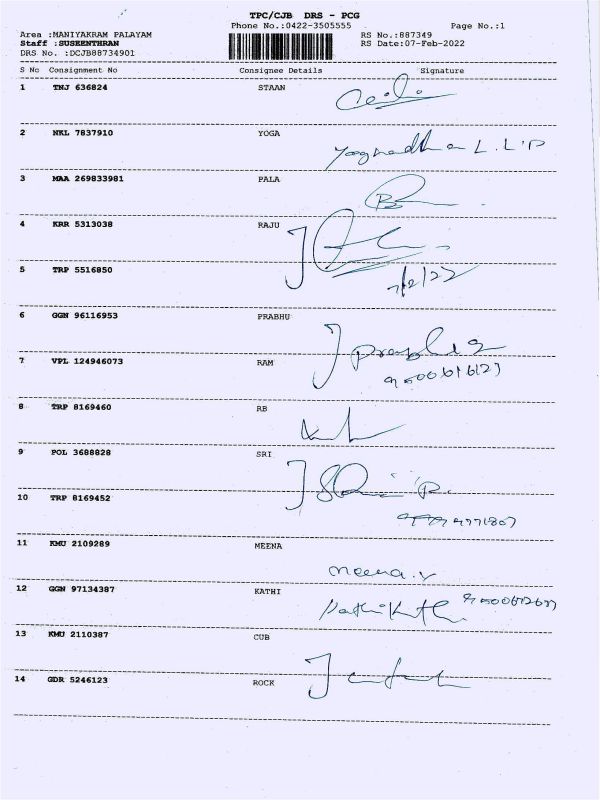 TPC/CJB DRS - PCG
Phone No.:0422-3505555 Page No.:1
Area :MANIYAKRAM PALAYAM RS No.:887349
Staff :SUSEENTHRAN RS Date:07-Feb-2022
DRS No. :DCJB88734901
S No Consignment No Consignee Details Signature
1 TNJ 636824 STAAN
2 NKL 7837910 YOGA
Yoganadhan L.L.P
3 MAA 269833981 PALA
4 KRR 5313038 RAJU
5 TRP 5516850
7/2/22
6 GGN 96116953 PRABHU
7 VPL 124946073 RAM
8 TRP 8169460 RB
9 POL 3688828 SRI
10 TRP 8169452
11 KMU 2109289 MEENA
meena.v
12 GGN 97134387 KATHI
13 KMU 2110387 CUB
14 GDR 5246123 ROCK